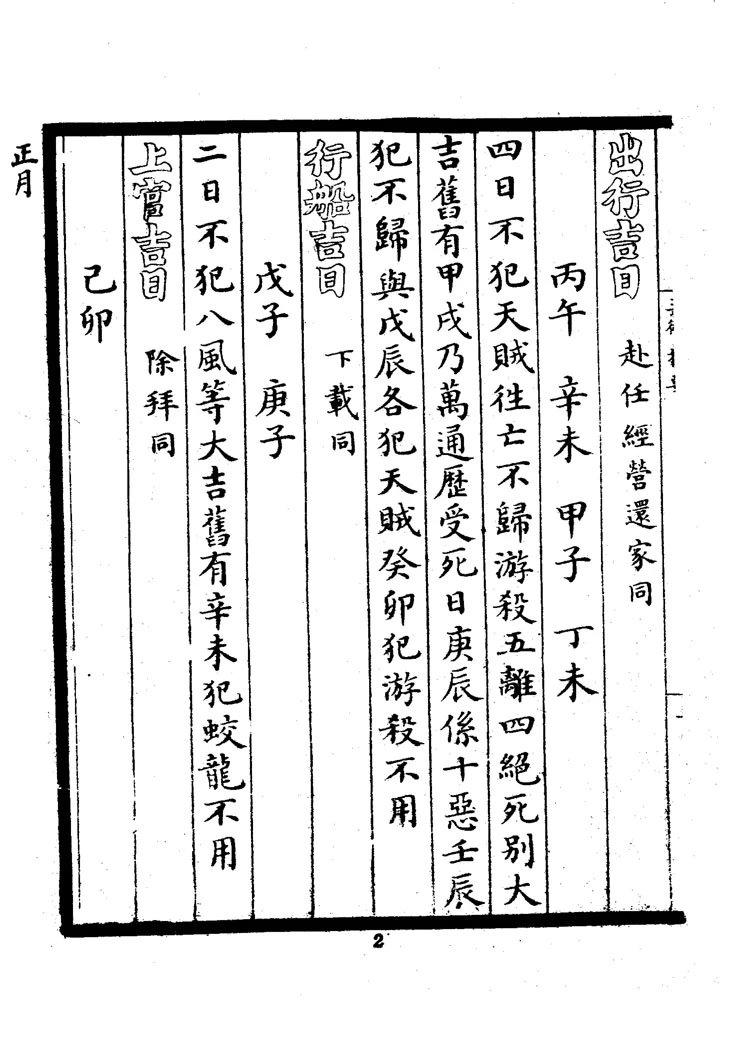 出行吉日　赴任經營還家同
丙午　辛未　甲子　丁未
四日不犯天賊徃亡不歸游殺五離四絕死別大
吉舊有甲戌乃萬通歷受死日庚辰係十惡壬辰
犯不歸與戊辰各犯天賊癸卯犯游殺不用
行船吉日　下載同
戊子　庚子
二日不犯八風等大吉舊有辛未犯蛟龍不用
上官吉日　除拜同
己卯
正月
2